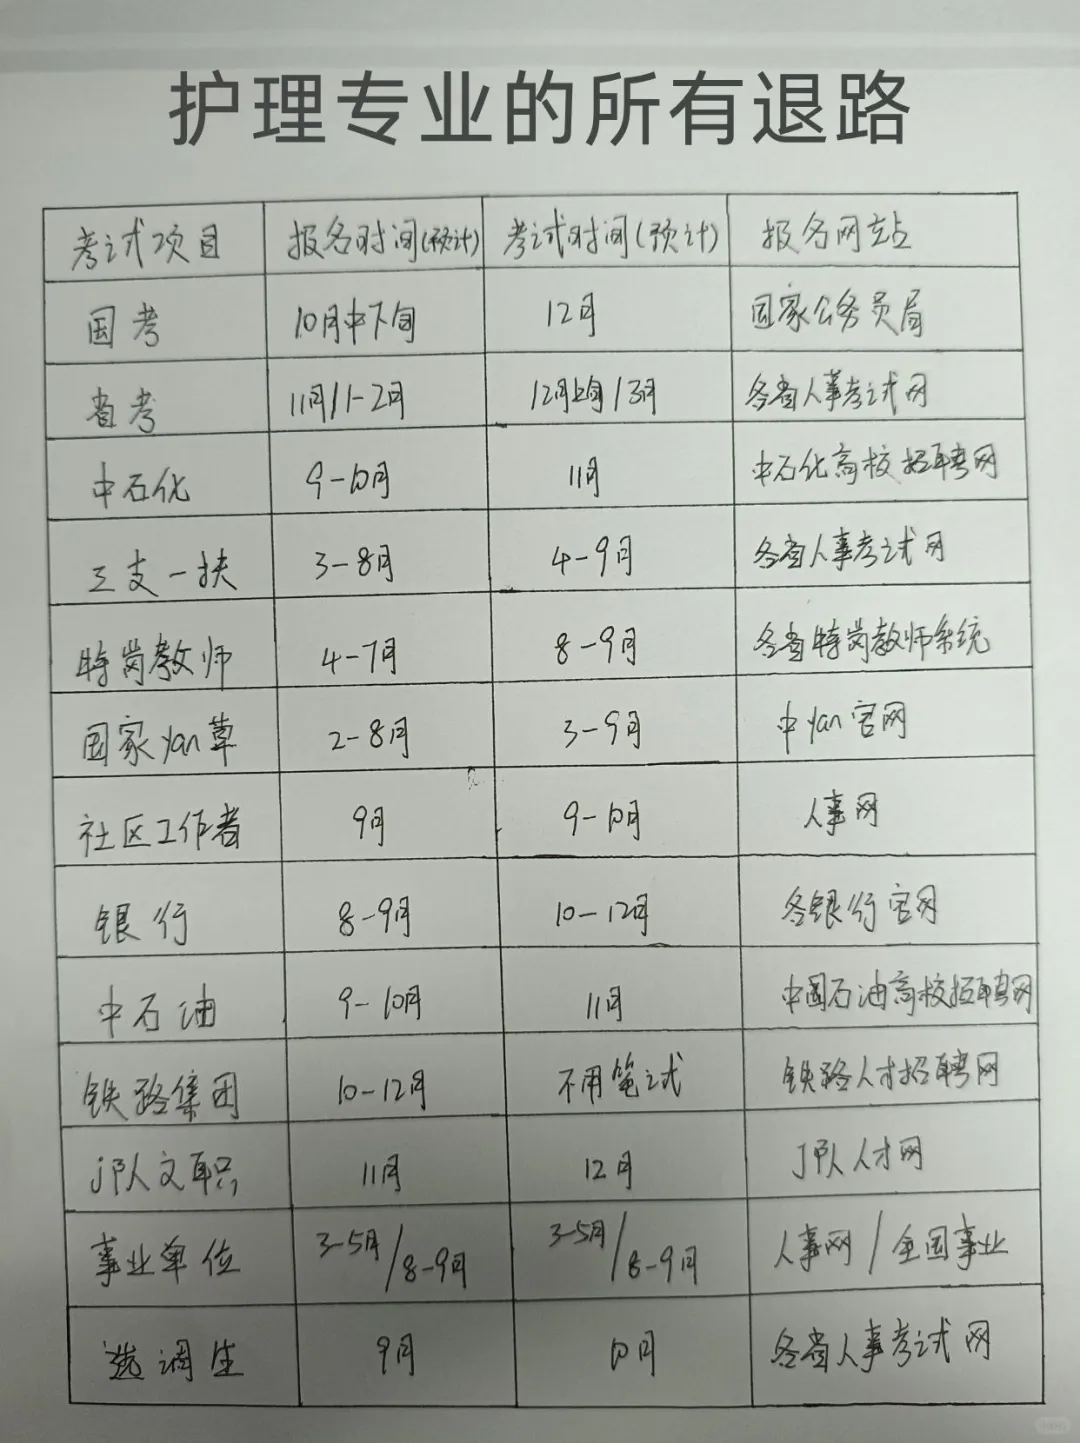 护理专业的所有退路
考试项目 报名时间(预计) 考试时间(预计) 报名网站
国考 10月中下旬 12月 国家公务员局
省考 11月/1-2月 12月上旬/3月 各省人事考试网
中石化 9-10月 11月 中石化高校招聘网
三支一扶 3-8月 4-9月 各省人事考试网
特岗教师 4-7月 8-9月 各省特岗教师系统
国家yan草 2-8月 3-9月 中yan官网
社区工作者 9月 9-10月 人事网
银行 8-9月 10-12月 各银行官网
中石油 9-10月 11月 中国石油高校招聘网
铁路集团 10-12月 不用笔试 铁路人才招聘网
j队人文职 11月 12月 J队人才网
事业单位 3-5月/8-9月 3-5月/8-9月 人事网/全国事业
选调生 9月 10月 各省人事考试网